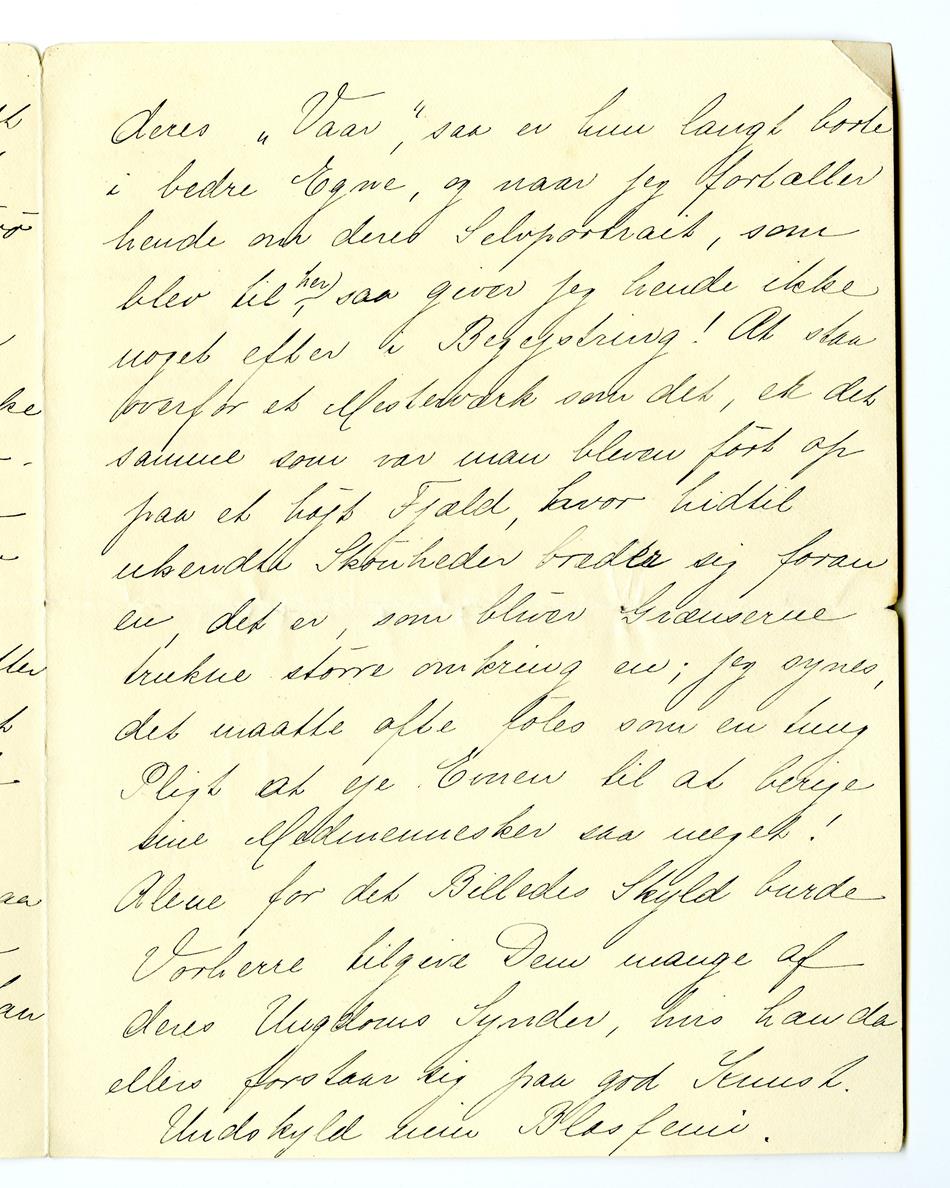 deres „Vaar“, saa er hun langt borte
i bedre Egne, og naar jeg fortæller
hende om deres Selvportrait, som
blev til her, saa giver jeg hende ikke
noget efter i Begejstring! At staa
overfor et Mesterværk som det, er det
samme som var man bleven ført op
paa et højt Fjæld, hvor hidtil
ukendte Skönheder breder sig foran
en, det er, som bliver Grænserne
trukne större omkring en; jeg synes,
det maatte ofte föles som en tung
Pligt at eje Evnen til at berige
sine Medmennesker saa meget!
Alene for det Billedes Skyld burde
Vorherre tilgive Dem mange af
deres Ungdoms Synder, hvis han da
ellers forstaar sig paa god Kunst.
Undskyld min Blasfemi.
ke
tter
aa
an